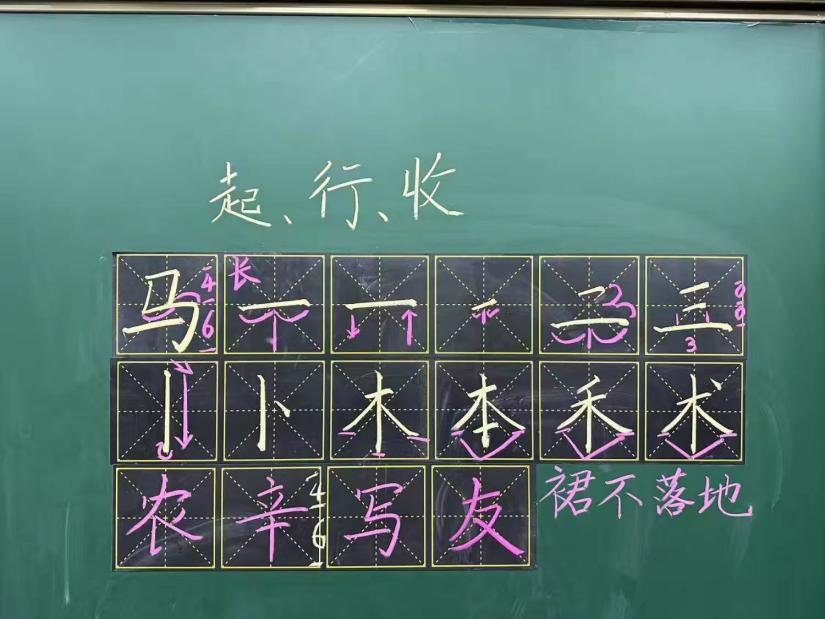 起、行、收
马 4 6 长 一 一 - 二 三 3
丨 卜 木 本 禾 术
农 辛 4 6 写 友 裙不落地